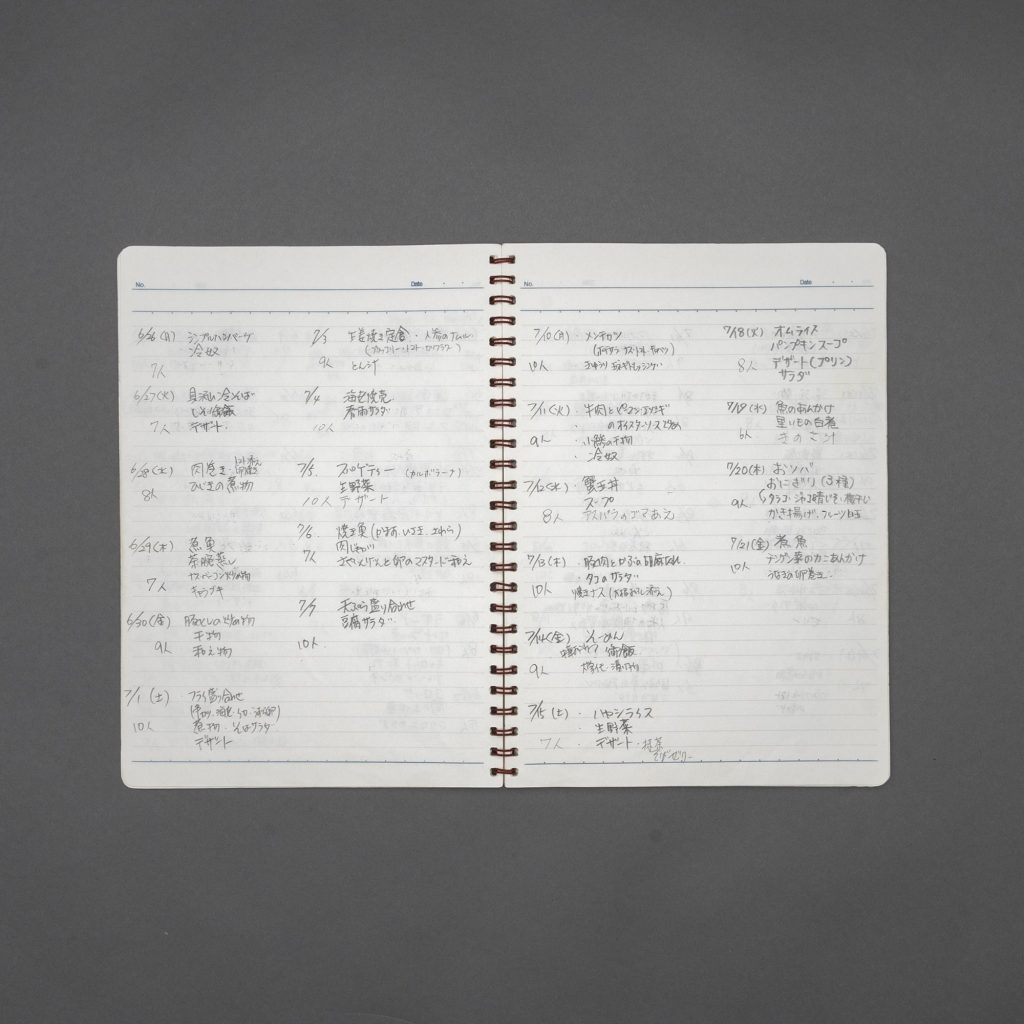 No.
Date
6/26(月) シンプルハンバーグ
冷奴
7人
6/27(火) 具沢山冷そば
しそ御飯
7人 デザート
6/28(水) 肉巻き・
8人 ひじきの煮物
6/29(木) 魚
茶碗蒸し
7人
6/30(金)
9人 和え物
7/1(土) フライ盛り合わせ
10人 煮物・そばサラダ
デザート
7/3 生姜焼き定食・人参のナムル
9人 とん汁
7/4 海老焼売
春雨サラダ
10人
7/5 スパゲティー(カルボナーラ)
生野菜
10人 デザート
7/6 焼き魚
7人 肉じゃが
7/7 天ぷら盛り合わせ
豆腐サラダ
10人
No.
Date
7/10(月) メンチカツ
10人
7/11(火)・牛肉とピーマン
のオイスターソース
9人・小鯵の干物
・冷奴
7/12(水) 蟹玉丼
スープ
8人 アスパラのゴマあえ
7/13(木)
・タコのサラダ
10人 焼きナス
7/14(金) そーめん
御飯
9人
7/15(土)・ハヤシライス
・生野菜
7人・デザート・
7/18(火) オムライス
パンプキンスープ
8人 デザート(プリン)
サラダ
7/19(水) 魚のあんかけ
里いもの白煮
6人 きのこ汁
7/20(木) おソバ
おにぎり(3種)
9人
かき揚げ・フルーツ白玉
7/21(金) 煮魚
10人 チンゲン菜のカニあんかけ